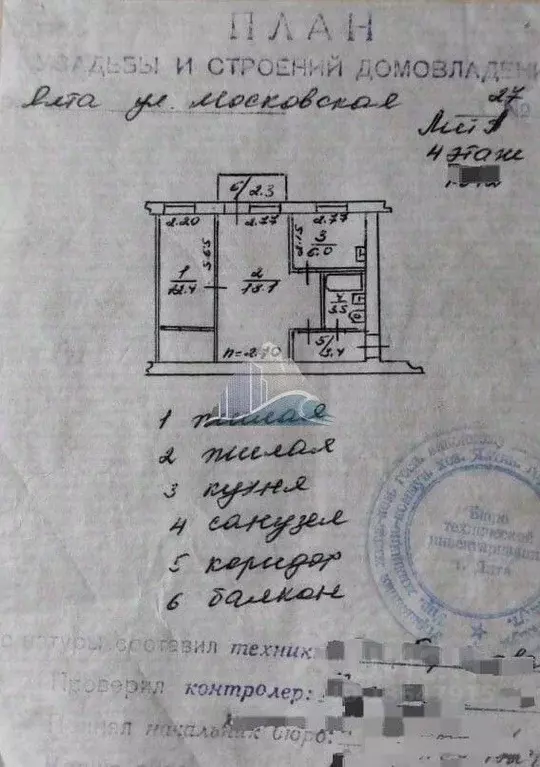 ПЛАН
УСАДЬБЫ И СТРОЕНИЙ ДОМОВЛАДЕНИ
Ялта ул. Московская 27
№
Лит А
4 этаж
6/2.3
2.20 2.77 2.77
5.65 2.15 3/6.0
1/12.4 2/15.7
4/3.5
5/3.4
h=2.70
1 жилая
2 жилая
3 кухня
4 санузел
5 коридор
6 балкон
Бюро
технической
инвентаризации
г. Ялта
с натуры составил техник:
Проверил контролер:
Принял начальник бюро: